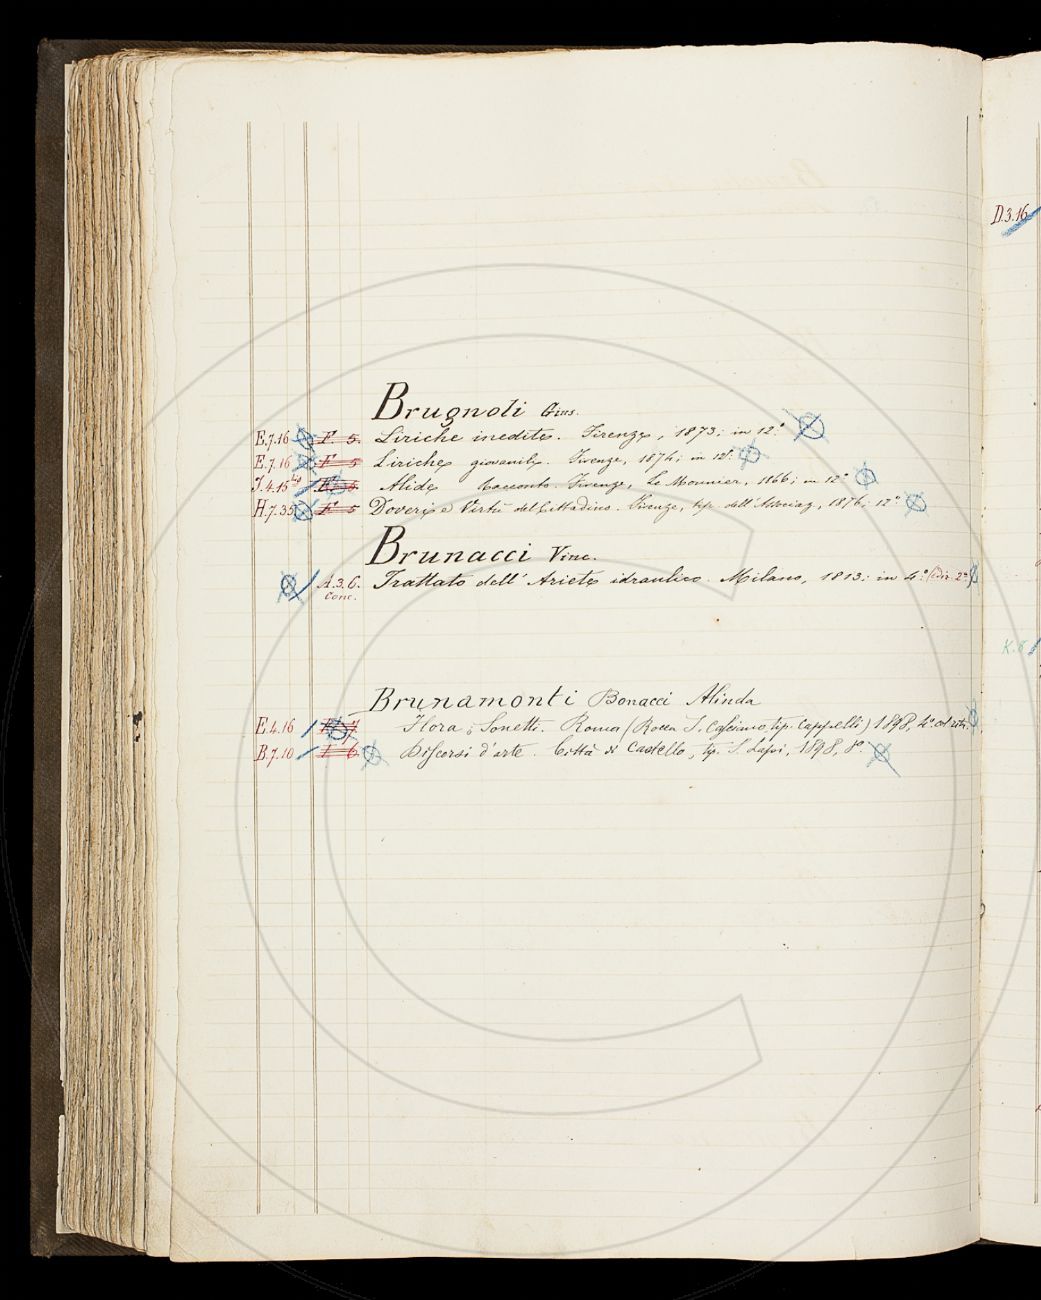 D.3.16
Brugnoli Gius.
E.7.16 F. 5. Liriche inedite. Firenze, 1873; in 12.°
E.7.16 F 5 Liriche giovanili. Firenze, 1874; in 12.°
J.4.15 F. 5 Alide Racconto. Firenze, Le Monnier, 1866; in 12°
H.7.35 F 5 Doveri e Virtù del Cittadino. Firenze, tip. dell'Associaz., 1876; 12°
Brunacci Vinc.
A.3.6. Trattato dell'Ariete idraulico. Milano, 1813; in 4°. 2°
Conc.
K.8
Brunamonti Bonacci Alinda
E.4.16 Flora; Sonetti. Roma (Rocca S. Casciano, tip. Cappelli) 1898,
B.7.10 I 6 Discorsi d'arte. Città di Castello, tip. S. Lapi, 1898, 8°